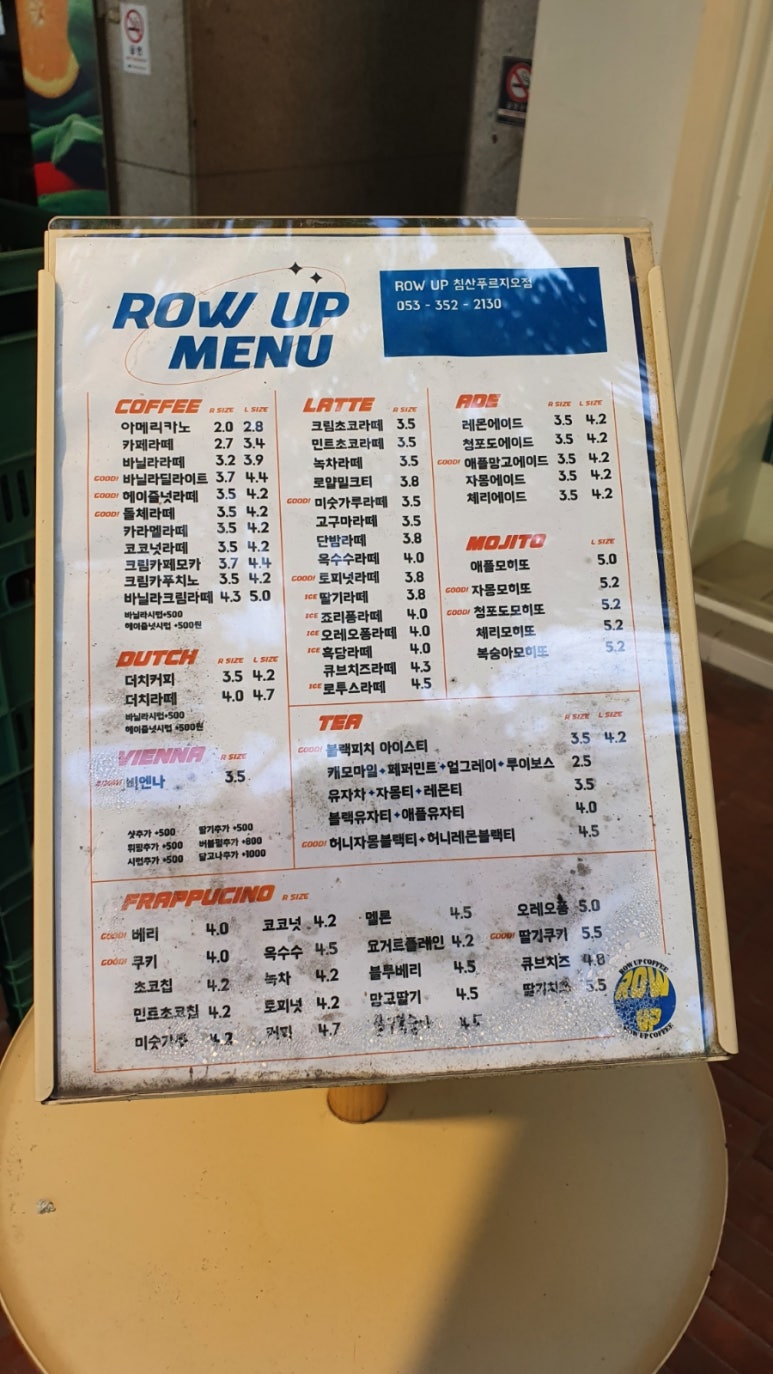 금연
ROW UP
MENU
ROW UP 침산푸르지오점
053 - 352 - 2130
COFFEE R SIZE L SIZE
아메리카노 2.0 2.8
카페라떼 2.7 3.4
바닐라라떼 3.2 3.9
GOOD! 바닐라딜라이트 3.7 4.4
GOOD! 헤이즐넛라떼 3.5 4.2
GOOD! 돌체라떼 3.5 4.2
카라멜라떼 3.5 4.2
코코넛라떼 3.5 4.2
크림카페모카 3.7 4.4
크림카푸치노 3.5 4.2
바닐라크림라떼 4.3 5.0
바닐라시럽+500
헤이즐넛시럽 +500원
DUTCH R SIZE L SIZE
더치커피 3.5 4.2
더치라떼 4.0 4.7
바닐라시럽+500
헤이즐넛시럽 +500원
VIENNA R SIZE
GOOD! 비엔나 3.5
샷추가 +500 딸기추가 +500
휘핑추가 +500 버블펄추가 +800
시럽추가 +500 달고나추가 +1000
LATTE R SIZE
크림초코라떼 3.5
민트초코라떼 3.5
녹차라떼 3.5
로얄밀크티 3.8
GOOD! 미숫가루라떼 3.5
고구마라떼 3.5
단밤라떼 3.8
옥수수라떼 4.0
GOOD! 토피넛라떼 3.8
ICE 딸기라떼 3.8
ICE 죠리퐁라떼 4.0
ICE 오레오퐁라떼 4.0
ICE 흑당라떼 4.0
큐브치즈라떼 4.3
ICE 로투스라떼 4.5
ADE R SIZE L SIZE
레몬에이드 3.5 4.2
청포도에이드 3.5 4.2
GOOD! 애플망고에이드 3.5 4.2
자몽에이드 3.5 4.2
체리에이드 3.5 4.2
MOJITO L SIZE
애플모히또 5.0
GOOD! 자몽모히또 5.2
GOOD! 청포도모히또 5.2
체리모히또 5.2
복숭아모히또 5.2
TEA R SIZE L SIZE
GOOD! 블랙피치 아이스티 3.5 4.2
캐모마일✦페퍼민트✦얼그레이✦루이보스 2.5
유자차✦자몽티✦레몬티 3.5
블랙유자티✦애플유자티 4.0
GOOD! 허니자몽블랙티✦허니레몬블랙티 4.5
FRAPPUCINO R SIZE
GOOD! 베리 4.0 코코넛 4.2 멜론 4.5 오레오퐁 5.0
GOOD! 쿠키 4.0 옥수수 4.5 요거트플레인 4.2 GOOD! 딸기쿠키 5.5
초코칩 4.2 녹차 4.2 블루베리 4.5 큐브치즈 4.8
민트초코칩 4.2 토피넛 4.2 망고딸기 4.5 딸기치즈 5.5
미숫가루 4.2 커피 4.7 4.5
ROW UP COFFEE
ROW
UP
ROW UP COFFEE